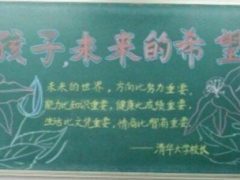 孩子,未来的希望
未来的世界,方向比努力重要,
能力比知识重要,健康比成绩重要,
生活比文凭重要,情商比智商重要。
——清华大学校长